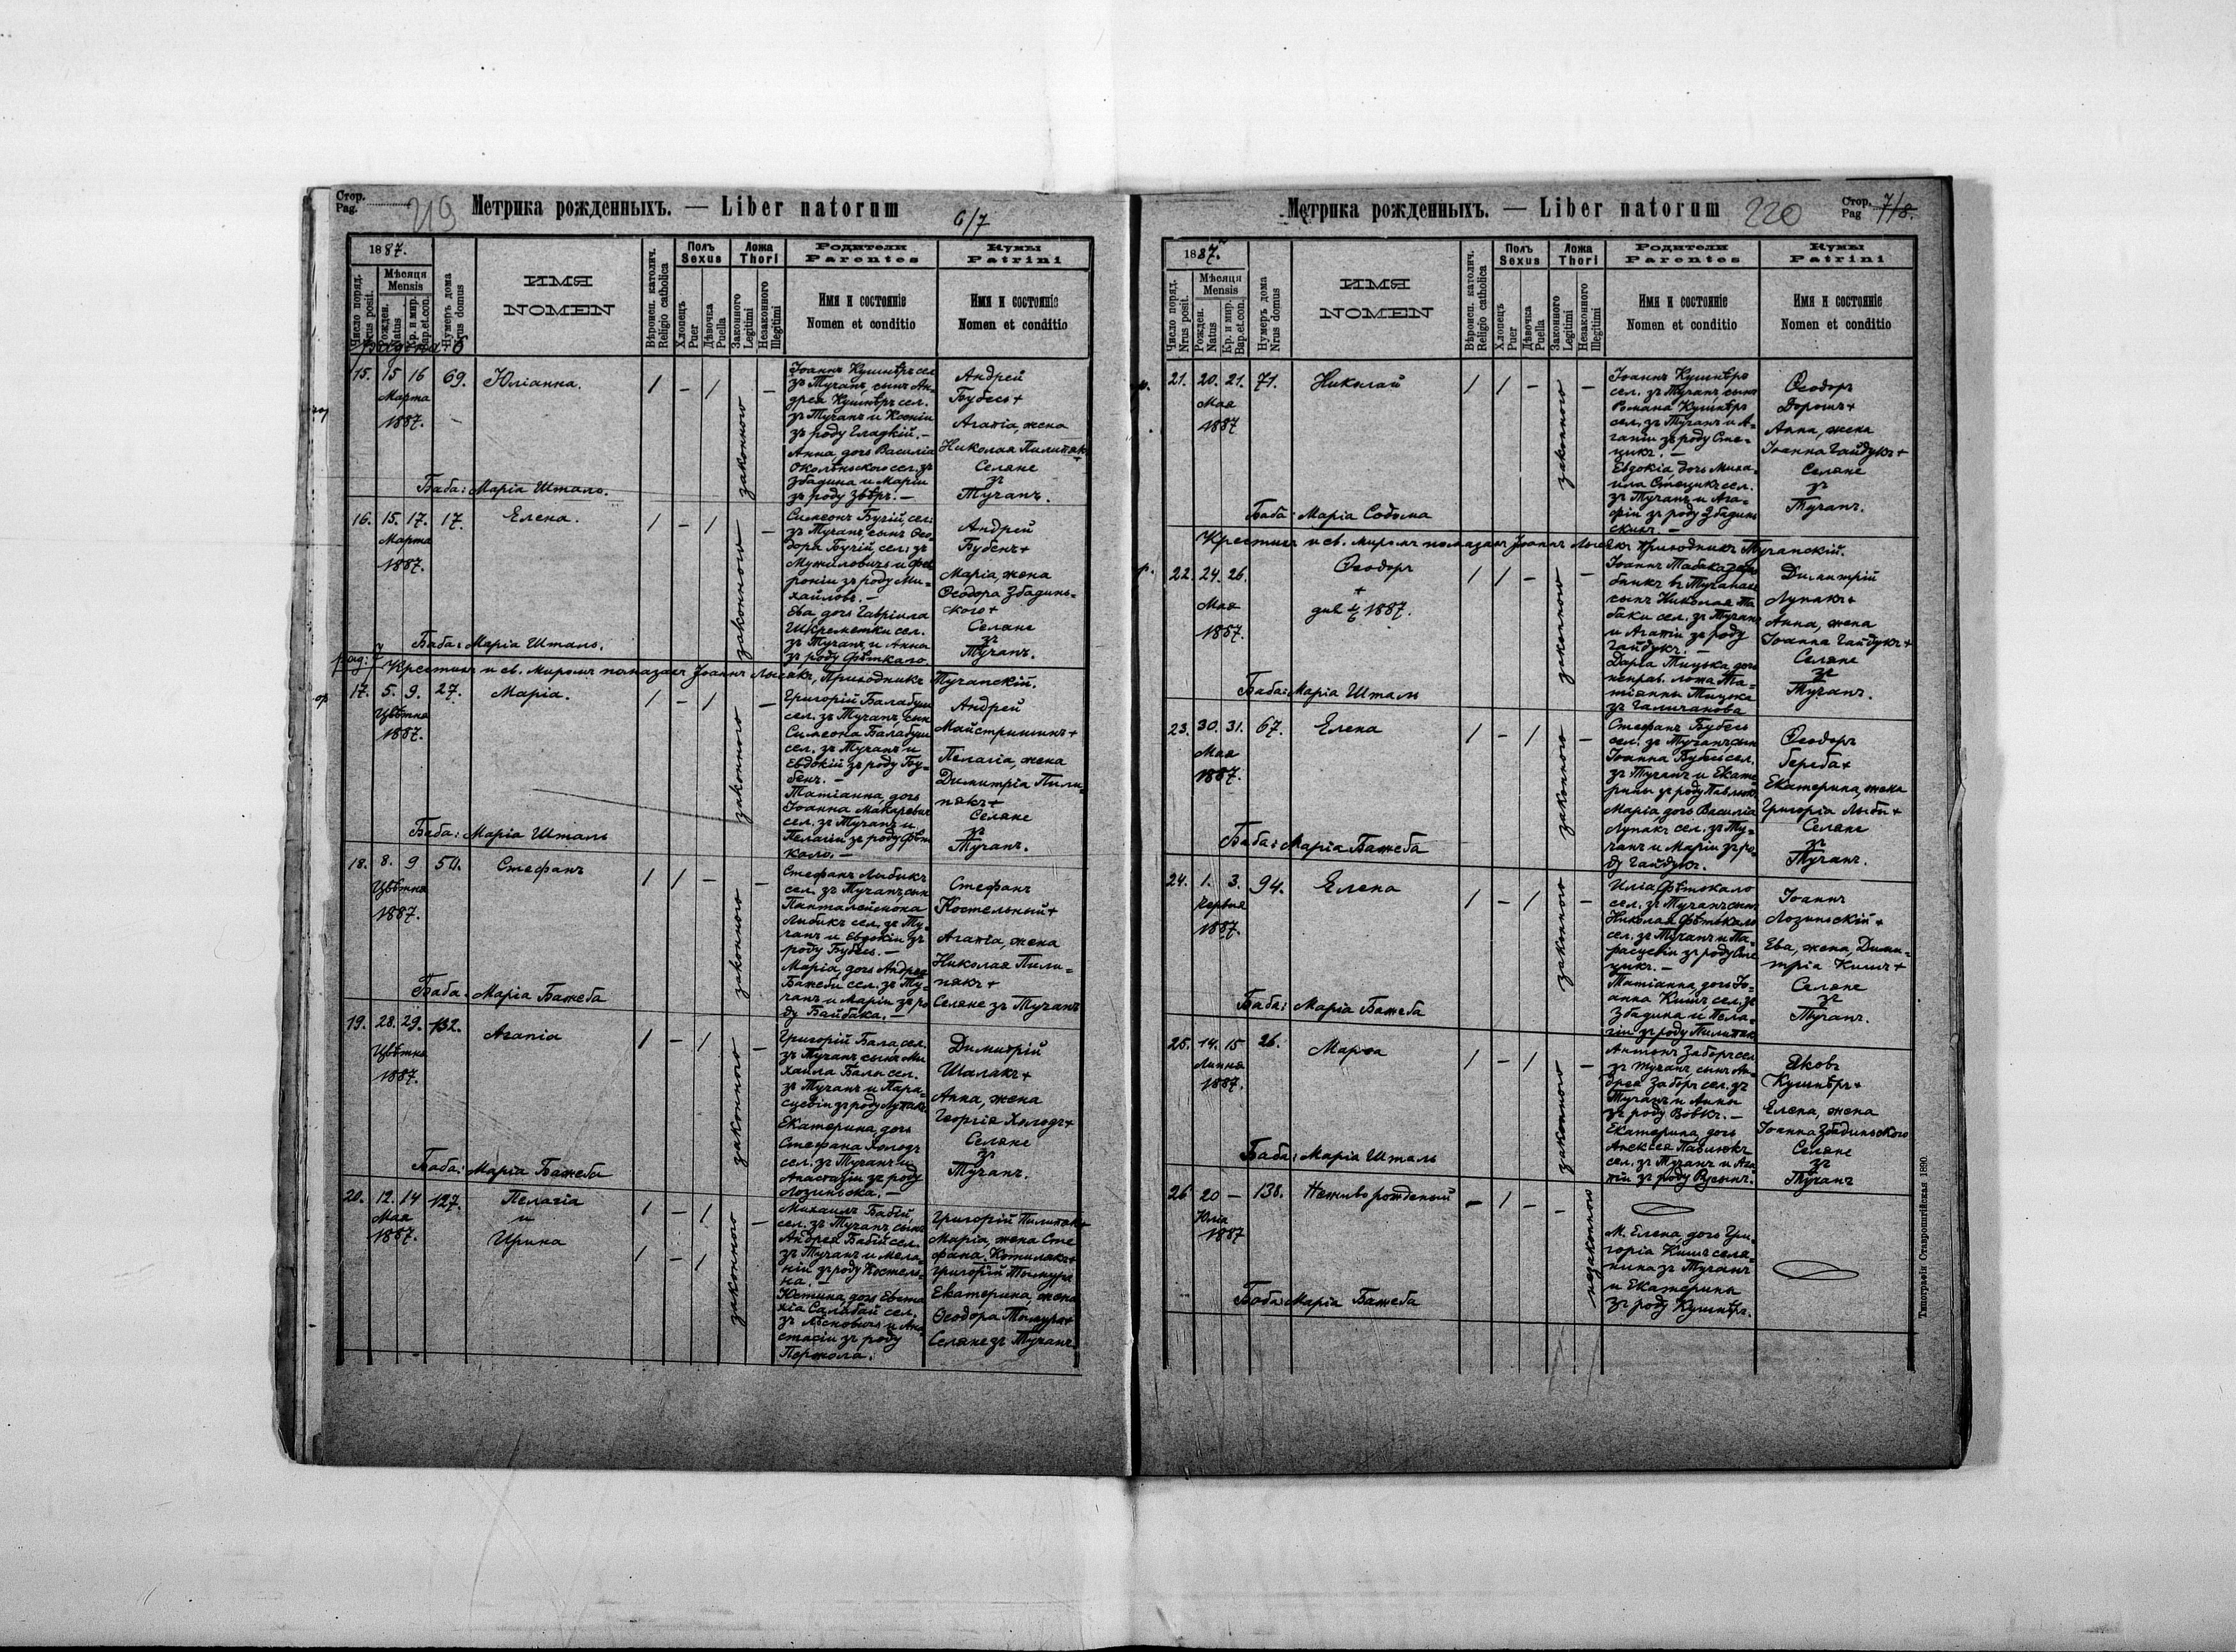 Стор.
Pag.
219
Метрика рожденныхъ. — Liber natorum
6/7
1887.
Число поряд.
Nrus posit.
Мѣсяця
Mensis
Рожден.
Natus
Кр. и мир.
Bap. et. con.
Нумеръ дома
Nrus domus
ИМЯ
NOMEN
Вѣроисп. католич.
Religio catholica
Полъ
Sexus
Хлопецъ
Puer
Дѣвочка
Puella
Ложа
Thori
Законного
Legitimi
Незаконного
Illegitimi
Родители
Parentes
Имя и состояніе
Nomen et conditio
Кумы
Patrini
Имя и состояніе
Nomen et conditio
15. 15 16 69. Юліанна. / - / законного -
Марта
1887.
Іоаннъ Кушнѣръ сел.
зъ Тучапъ, сынъ Ан-
дрея Кушнѣръ сел.
зъ Тучапъ и Ксеніи
зъ роду Гладкій. —
Анна, дочь Василія
Околѣньского сел. зъ
Збадина и Маріи
зъ роду Звѣръ. —
Андрей
Бубесь +
Агапія, жена
Николая Пилипякъ
+
Селяне
зъ
Тучапъ.
Баба: Марія Шталь.
16. 15. 17. 17. Елена. / - / законного -
Марта
1887.
Симеонъ Бучій, сел.
зъ Тучапъ, сынъ Ѳео-
дора Бучій, сел. зъ
Мужиловичъ и Фев
роніи зъ роду Ми-
хайловъ. —
Ева, дочь Гавріила
Шкреметки сел.
зъ Тучапъ, и Анна
зъ роду Фѣткало
Андрей
Бубенъ +
Марія, жена
Ѳеодора Збадинь-
ского +
Селяне
зъ
Тучапъ.
Баба: Марія Шталь.
pag: 7
Крестилъ и св. миромъ помазалъ Іоаннъ Лысякъ, Приходникъ Тучапскій.
17. 5. 9. 27. Марія. / - / законного -
Цвѣтня
1887.
Григорій Балабуш
сел. зъ Тучапъ, сын
Симеона Балабуш
сел. зъ Тучапъ и
Евдокій зъ роду Бу-
бенъ. —
Татіанна, дочь
Іоанна Макаревич
сел. зъ Тучапъ и
Пелагіи зъ роду Фѣт
кало. —
Андрей
Майстришинъ +
Пелагія, жена
Димитрія Пили-
пякъ +
Селяне
зъ
Тучапъ.
Баба: Марія Шталь
18. 8. 9 50. Стефанъ / / - законного -
Цвѣтня
1887.
Стефанъ Лыбикъ
сел. зъ Тучапъ, сын
Панталеймона
Лыбикъ сел. зъ Ту-
чапъ и Евдокіи зъ
роду Бубесь. —
Марія, дочь Андрея
Бажеби сел. зъ Ту-
чапъ и Маріи зъ ро
ду Байбака. —
Стефанъ
Костельный +
Агапія, жена
Николая Пили-
пякъ +
Селяне зъ Тучапъ
Баба: Марія Бажеба
19. 28. 29. 132. Агапія / - / законного -
Цвѣтня
1887.
Григорій Бала, сел.
зъ Тучапъ, сынъ Ми
хаила Балы сел.
зъ Тучапъ и Пара-
сцевіи зъ роду Лупакъ
Екатерина, дочь
Стефана Холодъ
сел. зъ Тучапъ и
Анастазіи зъ роду
Лозиньска. —
Димитрій
Шалакъ +
Анна, жена
Георгія Холодъ +
Селяне
зъ
Тучапъ.
Баба: Марія Бажеба
20. 12. 14 127. Пелагія / - / законного -
Мая и
1887. Ирина / - /
Михаилъ Бабій
сел. зъ Тучапъ, сынъ
Андрея Бабій сел.
зъ Тучапъ и Мела-
ніи зъ роду Костель-
на. —
Юстина, дочь Евста
хіа Салабай сел.
зъ Лѣсковичъ и Ана
стасіи зъ роду
Григорій Пилипякъ +
Марія, жена Сте
фана, Котилякъ +
Григорій Тымура
Екатерина, жена
Ѳеодора Тымура +
Селяне зъ Тучапъ.
Метрика рожденныхъ. — Liber natorum
220
Стор.
Pag
7/8.
1887.
Число поряд.
Nrus posit.
Мѣсяця
Mensis
Рожден.
Natus
Кр. и мир.
Bap. et. con.
Нумеръ дома
Nrus domus
ИМЯ
NOMEN
Вѣроисп. католич.
Religio catholica
Полъ
Sexus
Хлопецъ
Puer
Дѣвочка
Puella
Ложа
Thori
Законного
Legitimi
Незаконного
Illegitimi
Родители
Parentes
Имя и состояніе
Nomen et conditio
Кумы
Patrini
Имя и состояніе
Nomen et conditio
21. 20. 21. 71. Николай / / - законного -
Мая
1887
Іоаннъ Кушнѣръ
сел. зъ Тучапъ сынъ
Романа Кушнѣръ
сел. зъ Тучапъ и А-
гапіи зъ роду Сте-
цикъ. —
Евдокія, дочь Миха-
ила Стецикъ сел.
зъ Тучапъ и Ага-
фій зъ роду Збадинь
скихъ —
Ѳеодоръ
Дорошъ +
Анна, жена
Іоанна Гайдукъ +
Селяне
зъ
Тучапъ.
Баба: Марія Содома
Крестилъ и св. миромъ помазалъ Іоаннъ Лысякъ Приходникъ Тучапскій.
22. 24. 26. Ѳеодоръ / / - законного -
Мая +
1887. 1887.
Іоаннъ Табака
въ Тучапахъ
сынъ Николая Та
баки сел. зъ Тучапъ
и Агапіи зъ роду
Гайдукъ. —
Дарія Тицька, дочь
неправ. ложа Та-
тіанны Тицька
зъ Галичанова
Димитрій
Лупакъ +
Анна, жена
Іоанна Гайдукъ +
Селяне
зъ
Тучапъ.
Баба: Марія Шталь
23. 30. 31. 67. Елена / - / законного -
Мая
1887.
Стефанъ Бубесь
сел. зъ Тучапъ, сын
Іоанна Бубесь сел.
зъ Тучапъ и Екате-
рины зъ роду Павлюкъ
Марія дочь Василія
Лупакъ сел. зъ Ту-
чапъ и Маріи зъ ро-
ду Гайдукъ.
Ѳеодоръ
Береба +
Екатерина, жена
Григорія Лыби +
Селяне
зъ
Тучапъ.
Баба: Марія Бажеба
24. 1. 3. 94. Елена / - / законного -
Червня
1887.
Илія, Фѣткало
сел. зъ Тучапъ сын
Николая Фѣткало
сел. зъ Тучапъ и Па-
расцевіи зъ роду Сте
цикъ. —
Татіанна, дочь Іо-
анна Кишъ сел. зъ
Збадина и Пела-
гіи зъ роду Пилипяк
Іоаннъ
Лозиньскій +
Ева, жена, Дими-
трія Кишъ +
Селяне
зъ
Тучапъ.
Баба: Марія Бажеба
25. 14. 15 26. Марѳа / - / законного -
Липня
1887.
Антонъ Заборъ сел
зъ Тучапъ, сынъ Ан-
дрея Заборъ сел. зъ
Тучапъ и Анны
зъ роду Вовкъ. —
Екатерина, дочь
Алексѣя Павлюкъ
сел. зъ Тучапъ и Ага
піи зъ роду Русынъ.
Яковъ
Кушнѣръ +
Елена, жена
Іоанна Збадиньского
Селяне
зъ
Тучапъ
Баба: Марія Шталь
26 20 — 138. Неживо рожденый - / - - незаконного
Юлія
1887
М. Елена, дочь Гри-
горія Кишъ селя-
нина зъ Тучапъ
и Екатерины
зъ роду Кушнѣръ.
Баба: Марія Бажеба
Типографія Ставропигійская 1890.